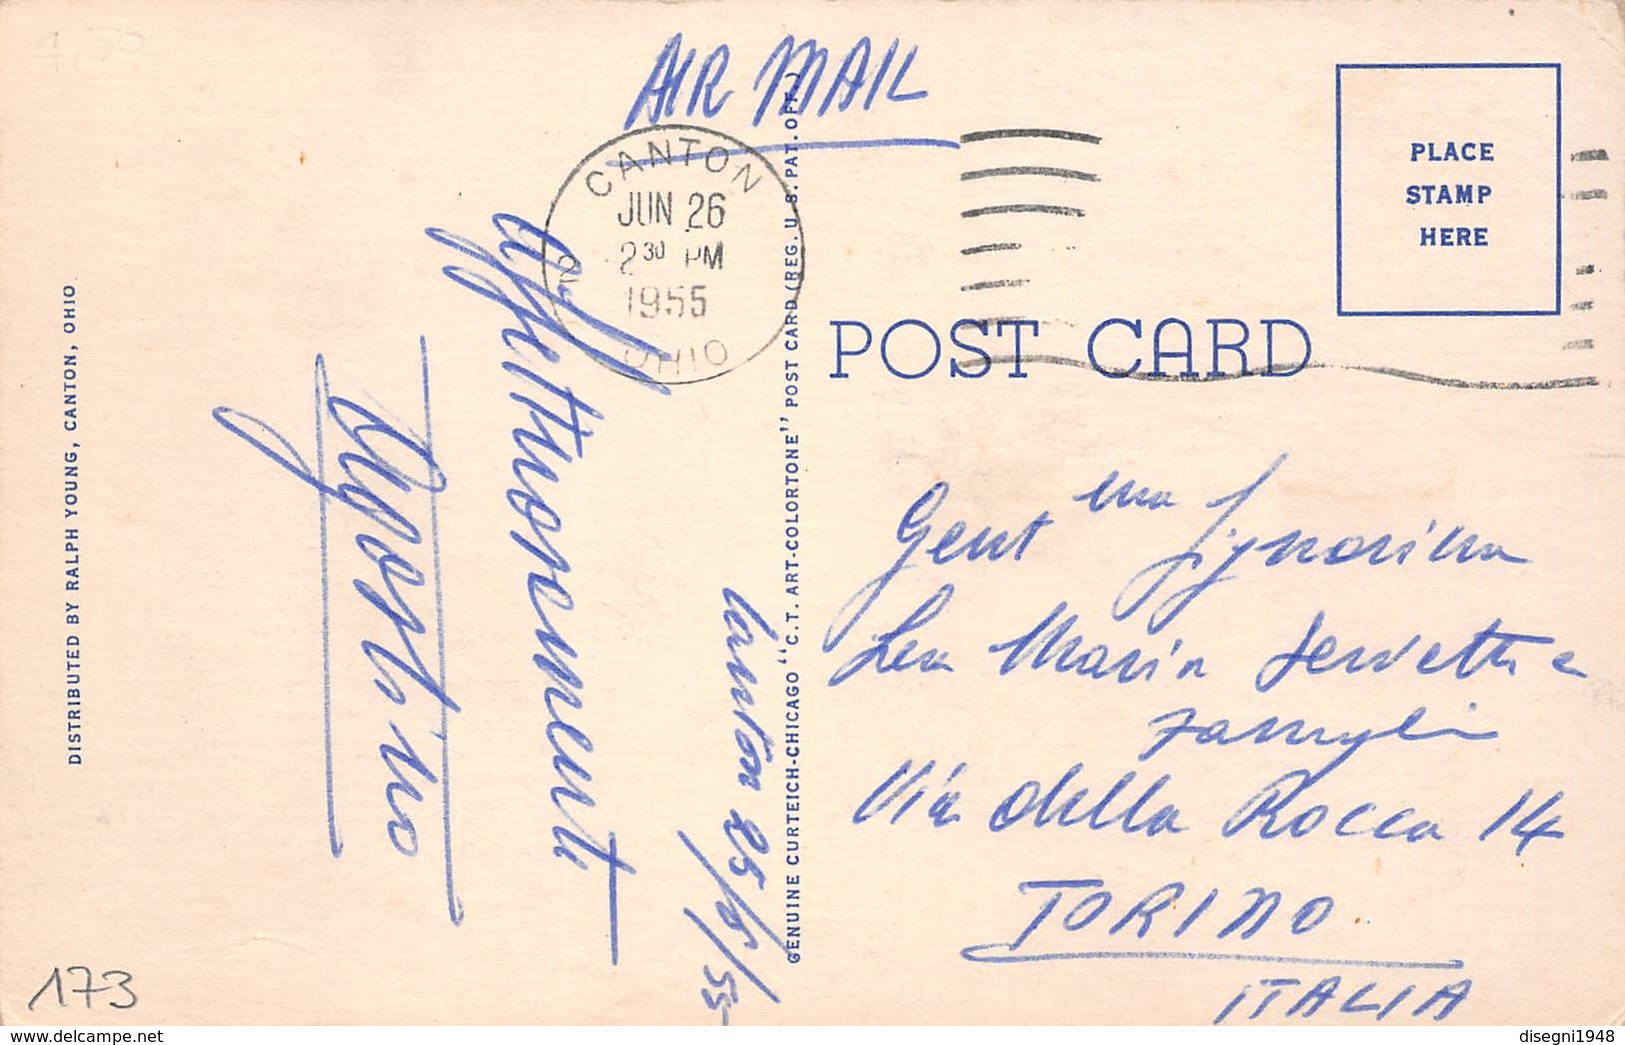 AIR MAIL
CANTON
JUN 26
2 30 PM
1955
OHIO
2
PLACE
STAMP
HERE
POST CARD
Canton 25/6/55
affettuosamente
Agostino
Gent ma Signorina
Lea Maria Servetti e
famiglia
Via della Rocca 14
TORINO
ITALIA
GENUINE CURTEICH-CHICAGO "C.T. ART-COLORTONE" POST CARD (REG. U.S. PAT. OFF.)
DISTRIBUTED BY RALPH YOUNG, CANTON, OHIO
1,50
173
www.delcampe.net
disegni1948